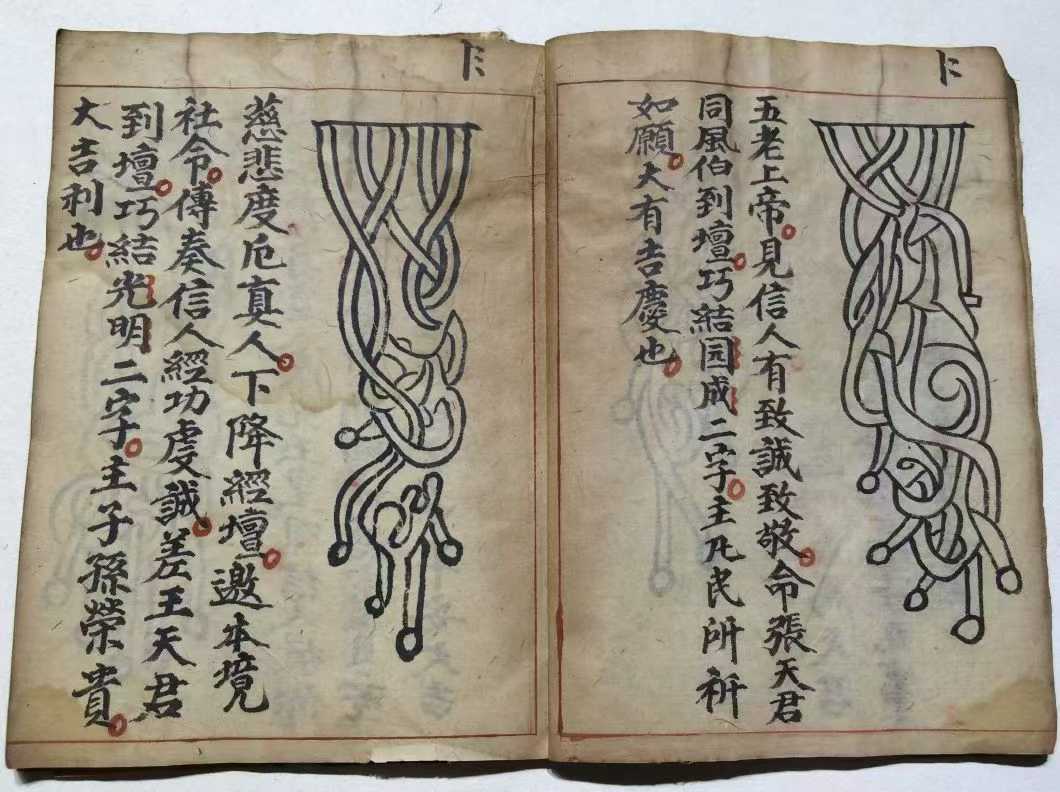 五老上帝見信人有致誠致敬命張天君
同風伯到壇巧結园成二字主凡民所祈
如願大有吉慶也
慈悲度厄真人下降經壇邀本境
社令傳奏信人經功虔誠差王天君
到壇巧結光明二字主子孫榮貴
大吉利也